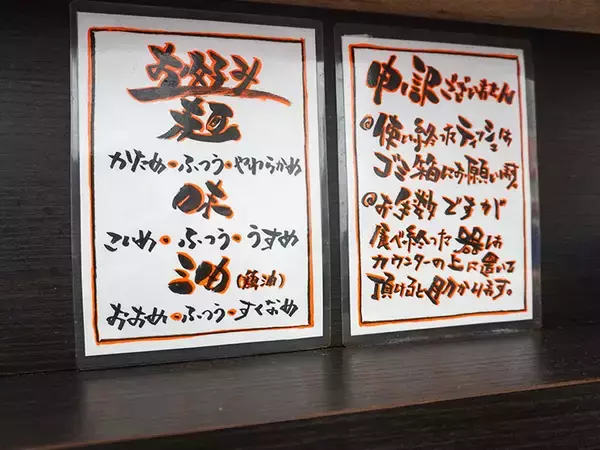 お好み
麺
かため・ふつう・やわらかめ
味
こいめ・ふつう・うすめ
油(魚油)
おおめ・ふつう・すくなめ
申し訳ございません
使い終ったティッシュは
ゴミ箱にお願い致
お手数ですが
食べ終った器は
カウンターの上に置いて
頂けると助かります。